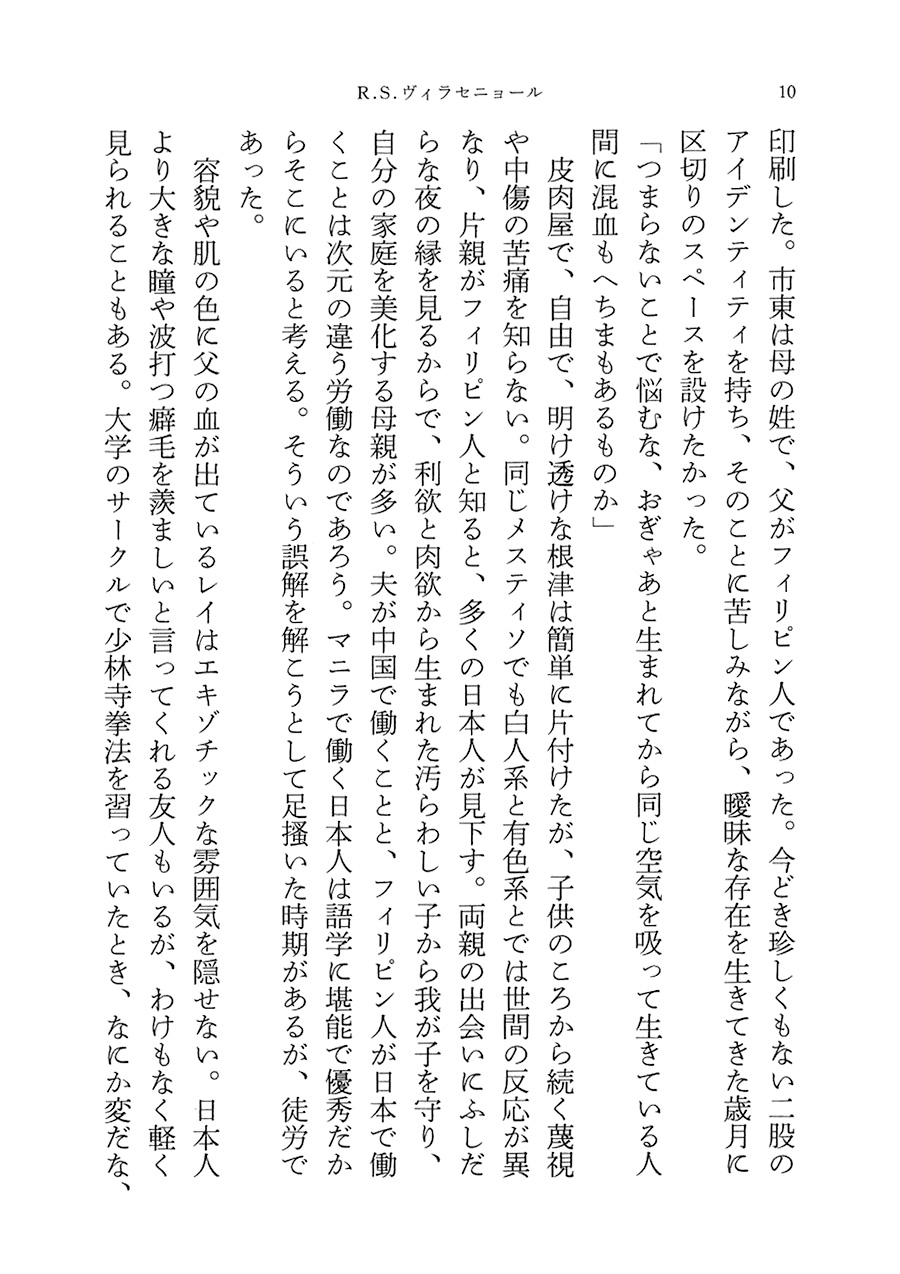 R.S.ヴィラセニョール
10
印刷した。市東は母の姓で、父がフィリピン人であった。今どき珍しくもない二股の
アイデンティティを持ち、そのことに苦しみながら、曖昧な存在を生きてきた歳月に
区切りのスペースを設けたかった。
「つまらないことで悩むな、おぎゃあと生まれてから同じ空気を吸って生きている人
間に混血もへちまもあるものか」
皮肉屋で、自由で、明け透けな根津は簡単に片付けたが、子供のころから続く蔑視
や中傷の苦痛を知らない。同じメスティソでも白人系と有色系とでは世間の反応が異
なり、片親がフィリピン人と知ると、多くの日本人が見下す。両親の出会いにふしだ
らな夜の縁を見るからで、利欲と肉欲から生まれた汚らわしい子から我が子を守り、
自分の家庭を美化する母親が多い。夫が中国で働くことと、フィリピン人が日本で働
くことは次元の違う労働なのであろう。マニラで働く日本人は語学に堪能で優秀だか
らそこにいると考える。そういう誤解を解こうとして足搔いた時期があるが、徒労で
あった。
容貌や肌の色に父の血が出ているレイはエキゾチックな雰囲気を隠せない。日本人
より大きな瞳や波打つ癖毛を羨ましいと言ってくれる友人もいるが、わけもなく軽く
見られることもある。大学のサークルで少林寺拳法を習っていたとき、なにか変だな、